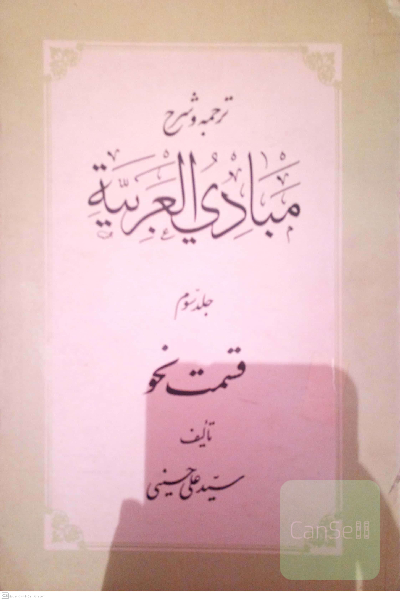 ترجمه و شرح
مَبَادِيُ الْعَرَبِيَّةِ
جلد سوم
قسمت نحو
تألیف
سیّد علی حسینی
CanSell